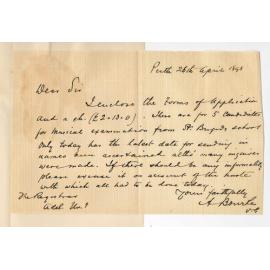 Perth 26th April 1898
Dear Sir
I enclose the Forms of Application
and a ch. (£2=10=0). These are for 5 Candidates
for Musical examination from St. Brigids school
Only today has the latest date for sending in
names been ascertained altho' many inquiries
were made. If there should be any informality
please excuse it on account of the haste
with which all had to be done today.
Yours faithfully
The Registrar
Adel. Un.
A Bourke